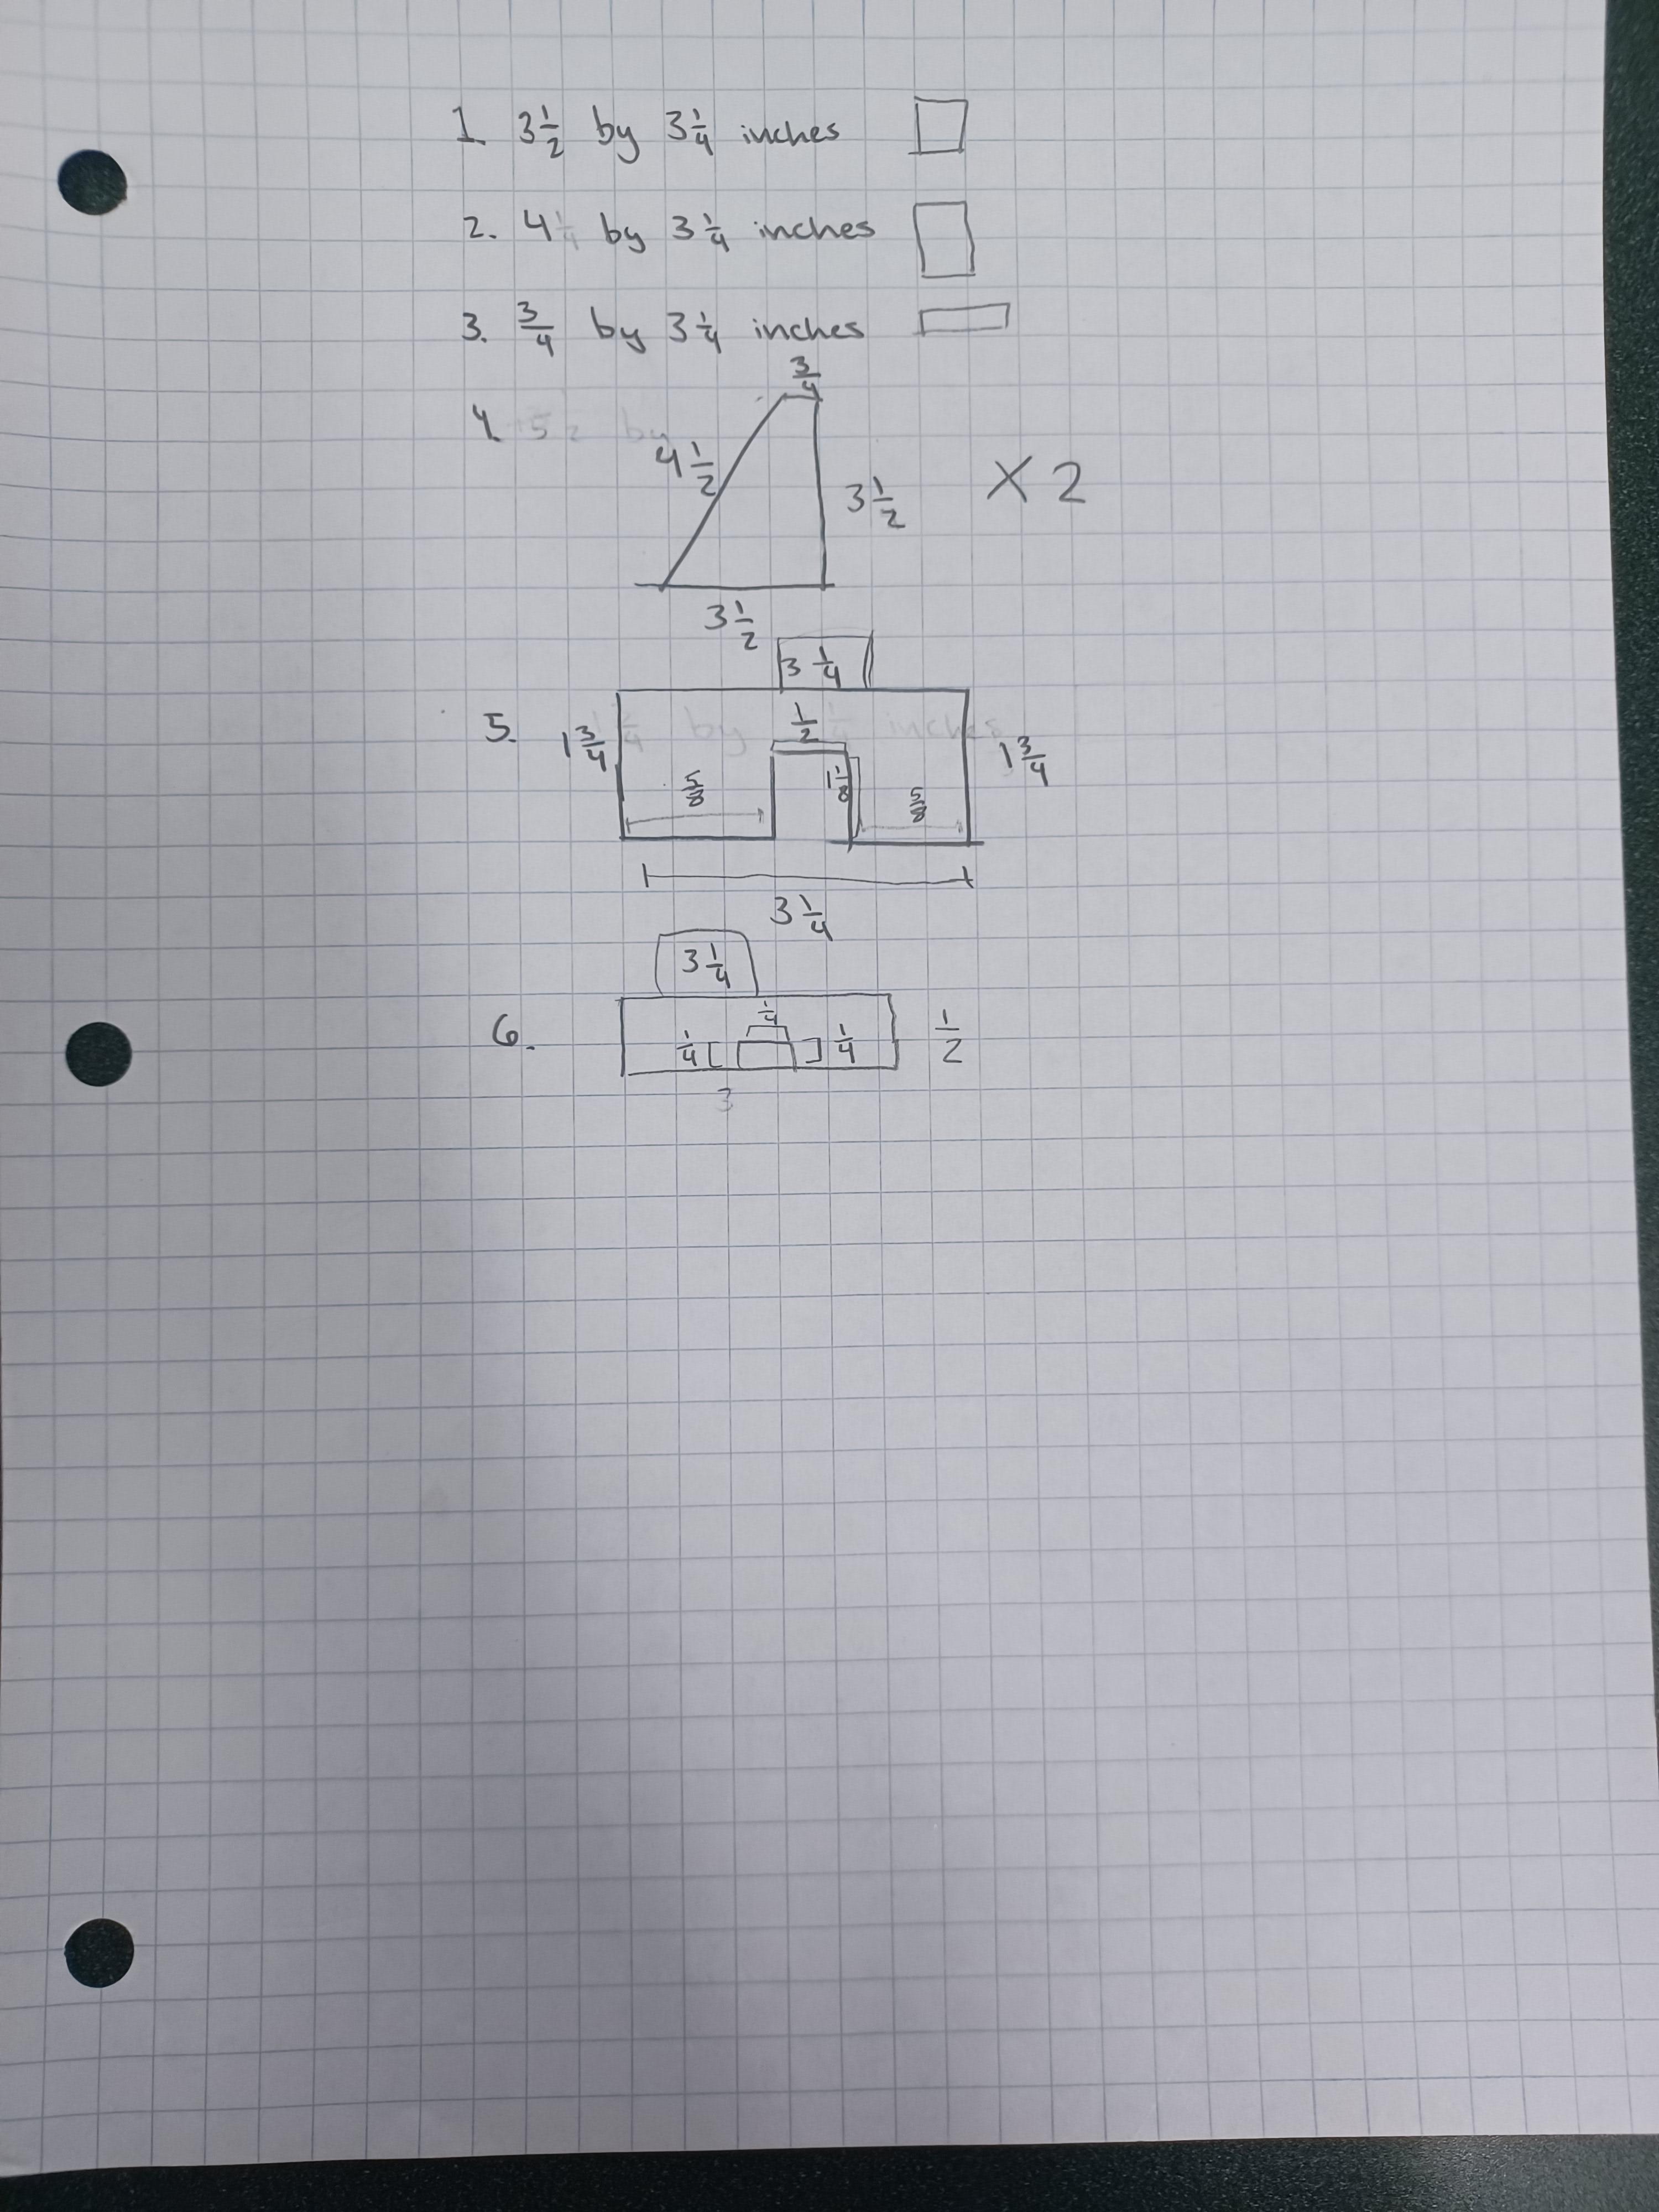 1. 3 1/2 by 3 1/4 inches
2. 4 1/4 by 3 1/4 inches
3. 3/4 by 3 1/4 inches
3/4
4. 5 2 by
4 1/2
3 1/2
X 2
3 1/2
3 1/4
5. 1 3/4
1/2
by inches
1 3/4
5/8
1 1/8
5/8
3 1/4
3 1/4
6.
1/4
1/4
1/4
1/2
3